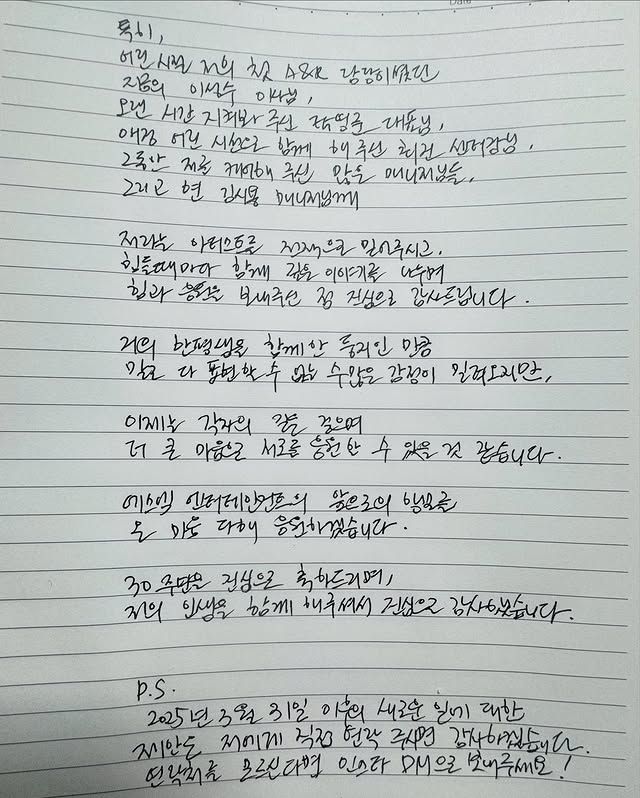 특히,
어린 시절 저의 첫 A&R 담당이셨던
지금의 이성수 이사님,
오랜 시간 지켜봐 주신 탁영준 대표님,
애정 어린 시선으로 함께 해 주신 최진 센터장님,
그동안 저를 케어해 주신 많은 매니저님들,
그리고 현 김시용 매니저님께
저라는 아티스트를 전적으로 믿어주시고,
힘들때마다 함께 깊은 이야기를 나누며
힘과 응원을 보내주신 점 진심으로 감사드립니다.
저의 한평생을 함께한 둥지인 만큼
말로 다 표현할 수 없는 수많은 감정이 밀려오지만,
이제는 각자의 길을 걸으며
더 큰 마음으로 서로를 응원할 수 있을 것 같습니다.
에스엠 엔터테인먼트의 앞으로의 행보를
온 마음 다해 응원하겠습니다.
30주년을 진심으로 축하드리며,
저의 인생을 함께 해주셔서 진심으로 감사했습니다.
P.S.
2025년 3월 31일 이후의 새로운 일에 대한
제안은 저에게 직접 연락 주시면 감사하겠습니다.
연락처를 모르신다면 인스타 DM으로 보내주세요!